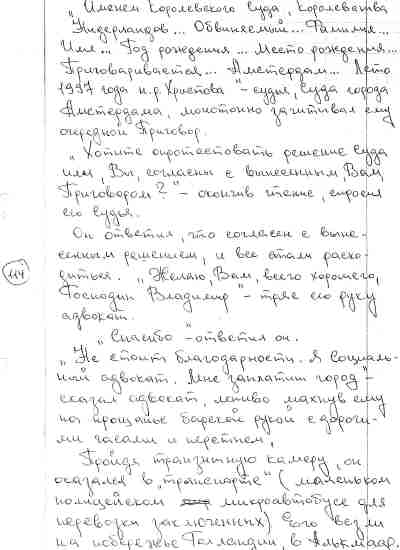 „Именем Королевского Суда, Королевства
Нидерландов... Обвиняемый... Фамилия...
Имя... Год рождения... Место рождения...
Приговаривается... Амстердам... Лето
1997 года н.р. Христова" - судья, суда города
Амстердама, монотонно зачитывал ему
очередной Приговор.
„Хотите опротестовать решение Суда
или, Вы, согласны с вынесенным, Вам,
Приговором?" - окончив чтение, спросил
его Судья.
Он ответил, что согласен с выне-
сенным решением, и все стали расхо-
диться. „Желаю, Вам, всего хорошего,
114
Господин Владимир" - тряс его руку
адвокат.
„Спасибо" - ответил он.
„Не стоит благодарности. Я социаль-
ный адвокат. Мне заплатит город" -
сказал адвокат, лениво махнув ему
на прощанье барской рукой с дороги-
ми часами и перстнем.
Пройдя транзитную камеру, он
оказался в „транспорте" (маленьком
полицейском микроавтобусе для
перевозки заключенных) Его везли
на побережье Голландии, в Алькмаар.